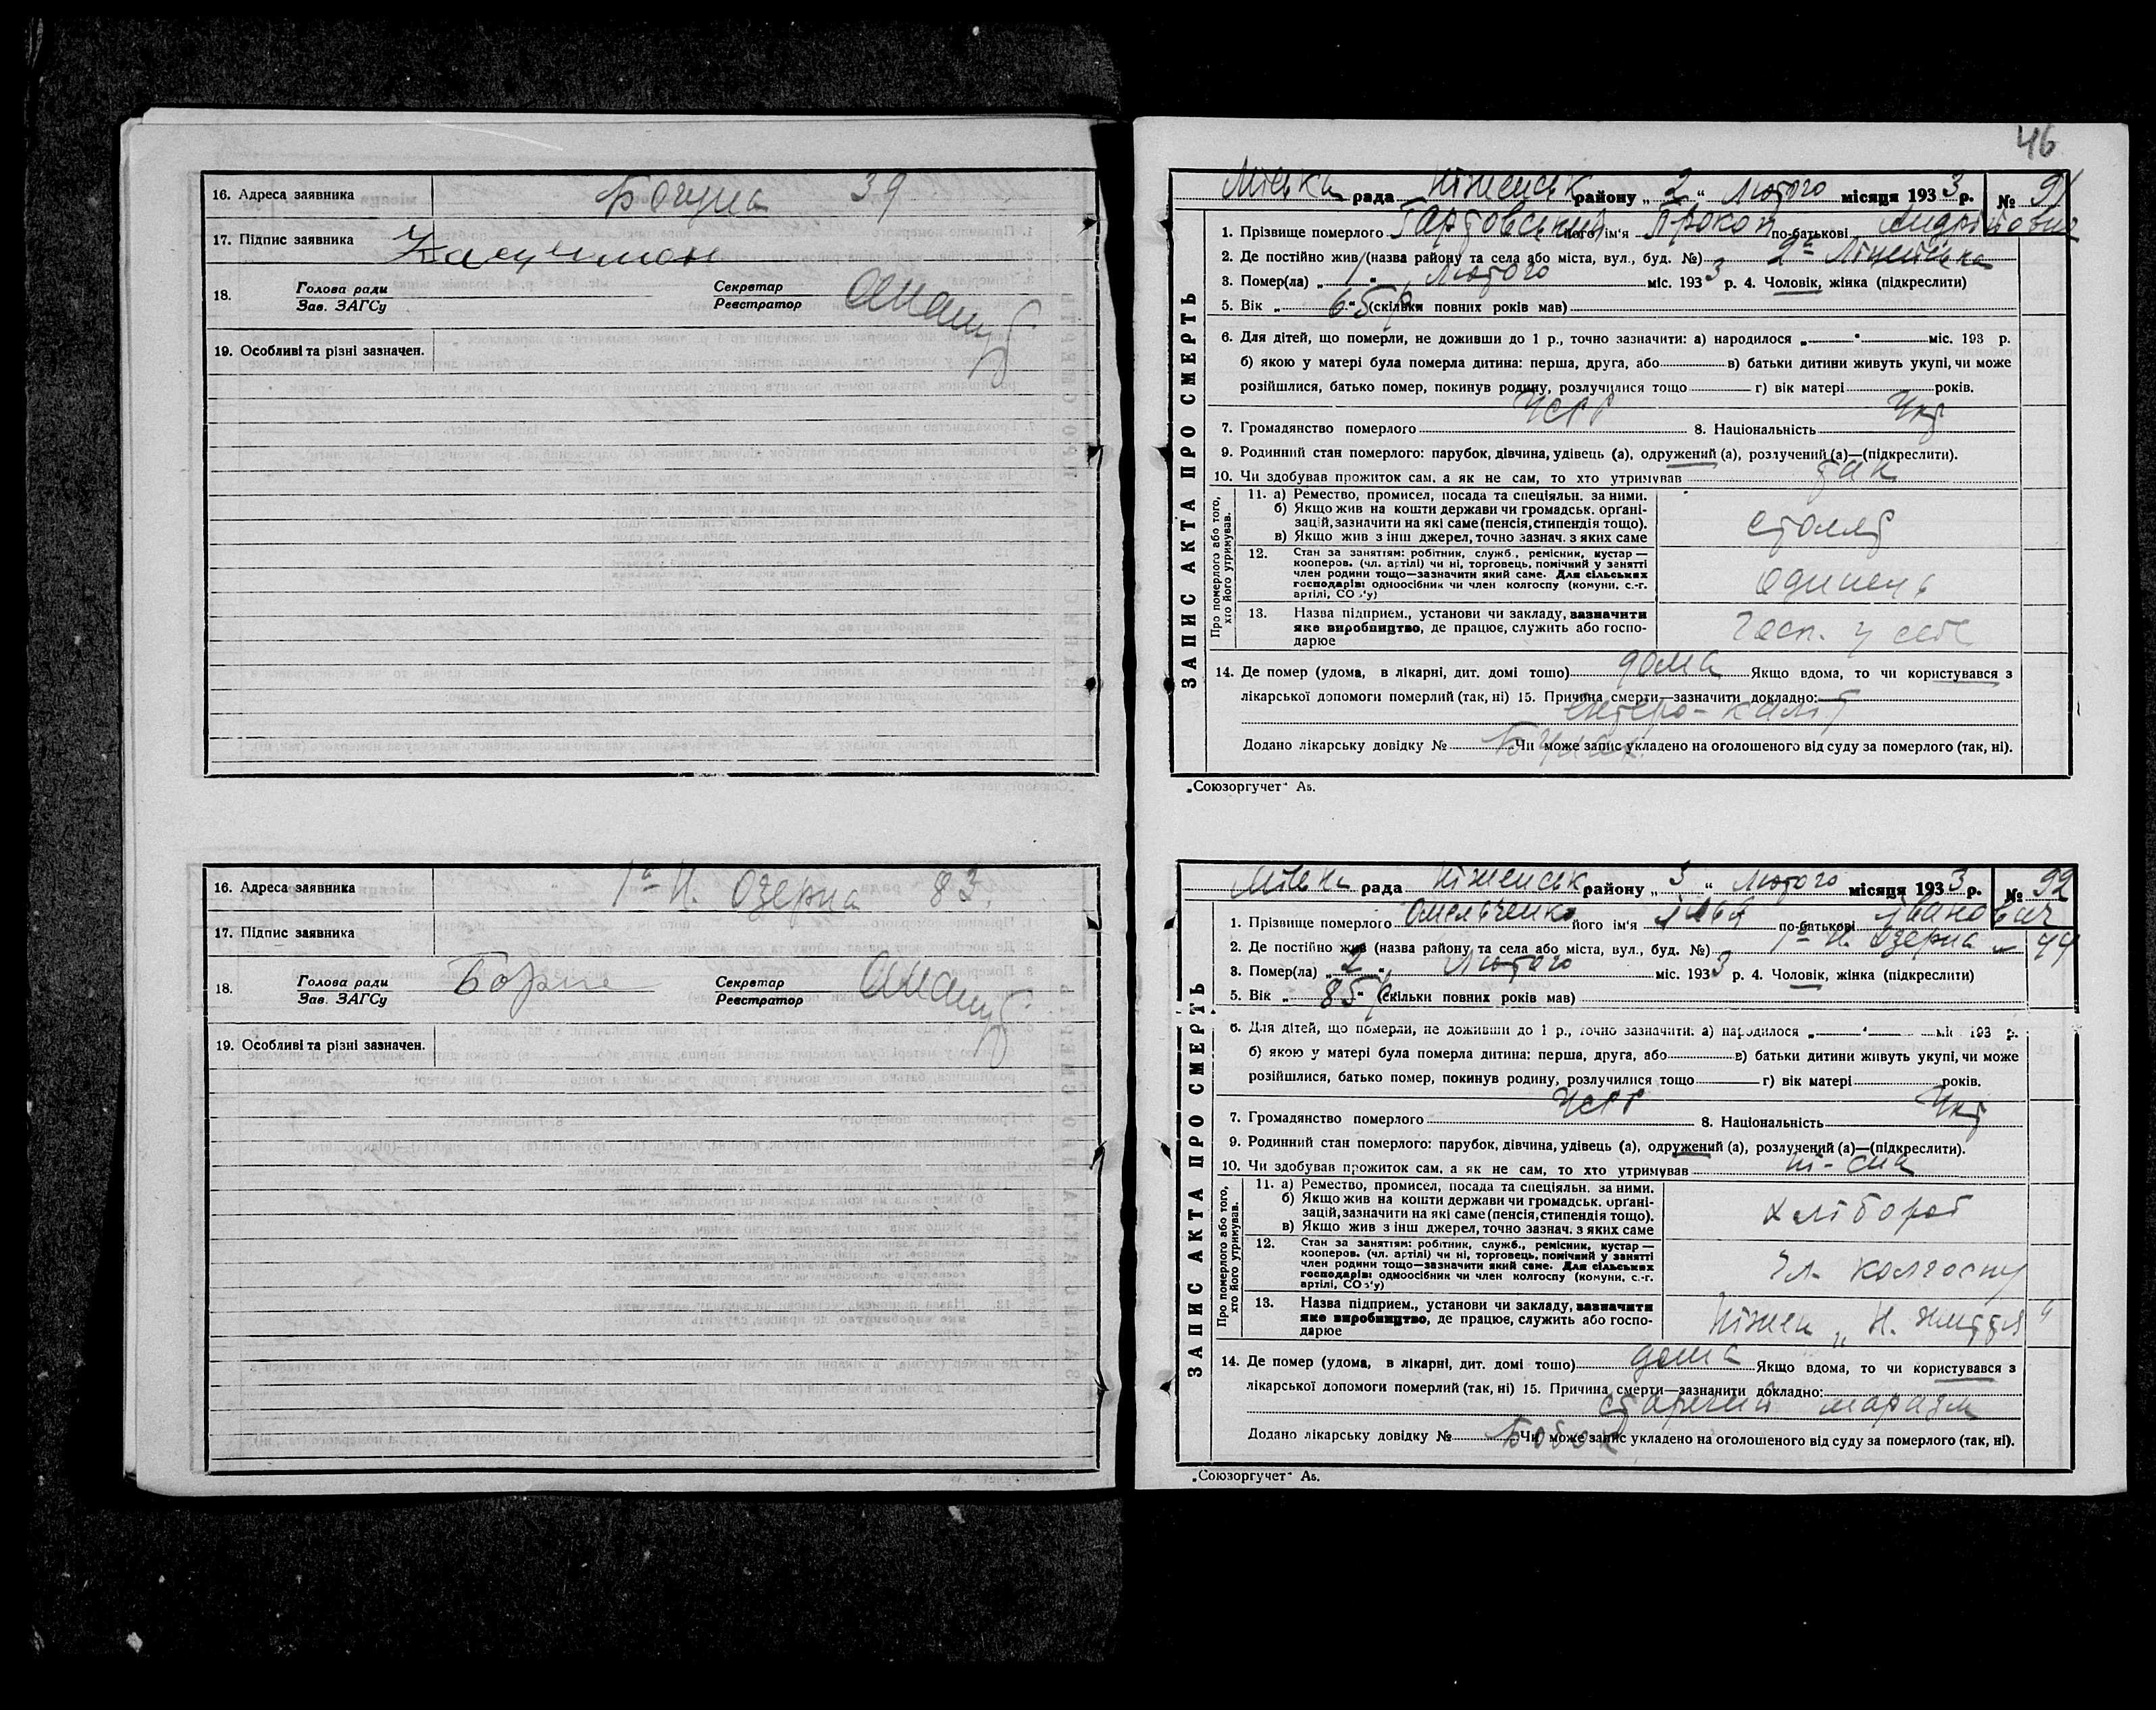 16. Адреса заявника Богуна 39
17. Підпис заявника
18. Голова ради Секретар
Зав. ЗАГСу Реєстратор
19. Особливі та різні зазначен.
16. Адреса заявника 1а Н. Озерна 83.
17. Підпис заявника
18. Голова ради Секретар
Зав. ЗАГСу Реєстратор
19. Особливі та різні зазначен.
46
Міська рада Ніженськ району „ 2 " Лютого місяця 1933 р. № 91
ЗАПИС АКТА ПРО СМЕРТЬ
1. Прізвище померлого Гартовський його ім'я Прокоп по-батькові Андрійович
2. Де постійно жив (назва району та села або міста, вул., буд. №) 2а Ліпейська
3. Помер(ла) „ 1 " Лютого міс. 1933 р. 4. Чоловік, жінка (підкреслити)
5. Вік „ 65 р " (скільки повних років мав)
6. Для дітей, що померли, не доживши до 1 р., точно зазначити: а) народилося „ " міс. 193 р.
б) якою у матері була померла дитина: перша, друга, або в) батьки дитини живуть укупі, чи може
розійшлися, батько помер, покинув родину, розлучилися тощо г) вік матері років.
7. Громадянство померлого УСРР 8. Національність Укр
9. Родинний стан померлого: парубок, дівчина, удівець (а), одружений (а), розлучений (а)—(підкреслити).
10. Чи здобував прожиток сам, а як не сам, то хто утримував так
Про померлого або того, хто його утримував.
11. а) Ремество, промисел, посада та спеціяльн. за ними.
б) Якщо жив на кошти держави чи громадськ. орґані-
зацій, зазначити на які саме (пенсія, стипендія тощо).
в) Якщо жив з інш джерел, точно зазнач. з яких саме
столяр
12. Стан за заняттям: робітник, служб., ремісник, кустар —
кооперов. (чл. артілі) чи ні, торговець, помічний у занятті
член родини тощо—зазначити який саме. Для сільських
господарів: одноосібник чи член колгоспу (комуни, с.-г.
артілі, СОЗ'у)
одинець
13. Назва підприєм., установи чи закладу, зазначити
яке виробництво, де працює, служить або госпо-
дарює
Госп. у себе
14. Де помер (удома, в лікарні, дит. домі тощо) дома Якщо вдома, то чи користувався з
лікарської допомоги померлий (так, ні) 15. Причина смерти—зазначити докладно:
ентеро-коліт
Додано лікарську довідку № Чи може запис укладено на оголошеного від суду за померлого (так, ні).
„Союзоргучет" А5.
Міська рада Ніженськ району „ 3 " Лютого місяця 1933 р. № 92
ЗАПИС АКТА ПРО СМЕРТЬ
1. Прізвище померлого Омельченко його ім'я Ілля по-батькові Іванович
2. Де постійно жив (назва району та села або міста, вул., буд. №) 1а Н. Озерна 44
3. Помер(ла) „ 2 " Лютого міс. 1933 р. 4. Чоловік, жінка (підкреслити)
5. Вік „ 85 р " (скільки повних років мав)
6. Для дітей, що померли, не доживши до 1 р., точно зазначити: а) народилося „ " міс. 193 р.
б) якою у матері була померла дитина: перша, друга, або в) батьки дитини живуть укупі, чи може
розійшлися, батько помер, покинув родину, розлучилися тощо г) вік матері років.
7. Громадянство померлого УСРР 8. Національність Укр
9. Родинний стан померлого: парубок, дівчина, удівець (а), одружений (а), розлучений (а)—(підкреслити).
10. Чи здобував прожиток сам, а як не сам, то хто утримував ні - син
Про померлого або того, хто його утримував.
11. а) Ремество, промисел, посада та спеціяльн. за ними.
б) Якщо жив на кошти держави чи громадськ. орґані-
зацій, зазначити на які саме (пенсія, стипендія тощо).
в) Якщо жив з інш джерел, точно зазнач. з яких саме
хлібороб
12. Стан за заняттям: робітник, служб., ремісник, кустар —
кооперов. (чл. артілі) чи ні, торговець, помічний у занятті
член родини тощо—зазначити який саме. Для сільських
господарів: одноосібник чи член колгоспу (комуни, с.-г.
артілі, СОЗ'у)
Чл. колгоспу
13. Назва підприєм., установи чи закладу, зазначити
яке виробництво, де працює, служить або госпо-
дарює
Ніжен „Н. життя"
14. Де помер (удома, в лікарні, дит. домі тощо) дома Якщо вдома, то чи користувався з
лікарської допомоги померлий (так, ні) 15. Причина смерти—зазначити докладно:
старечий маразм
Додано лікарську довідку № Чи може запис укладено на оголошеного від суду за померлого (так, ні).
„Союзоргучет" А5.